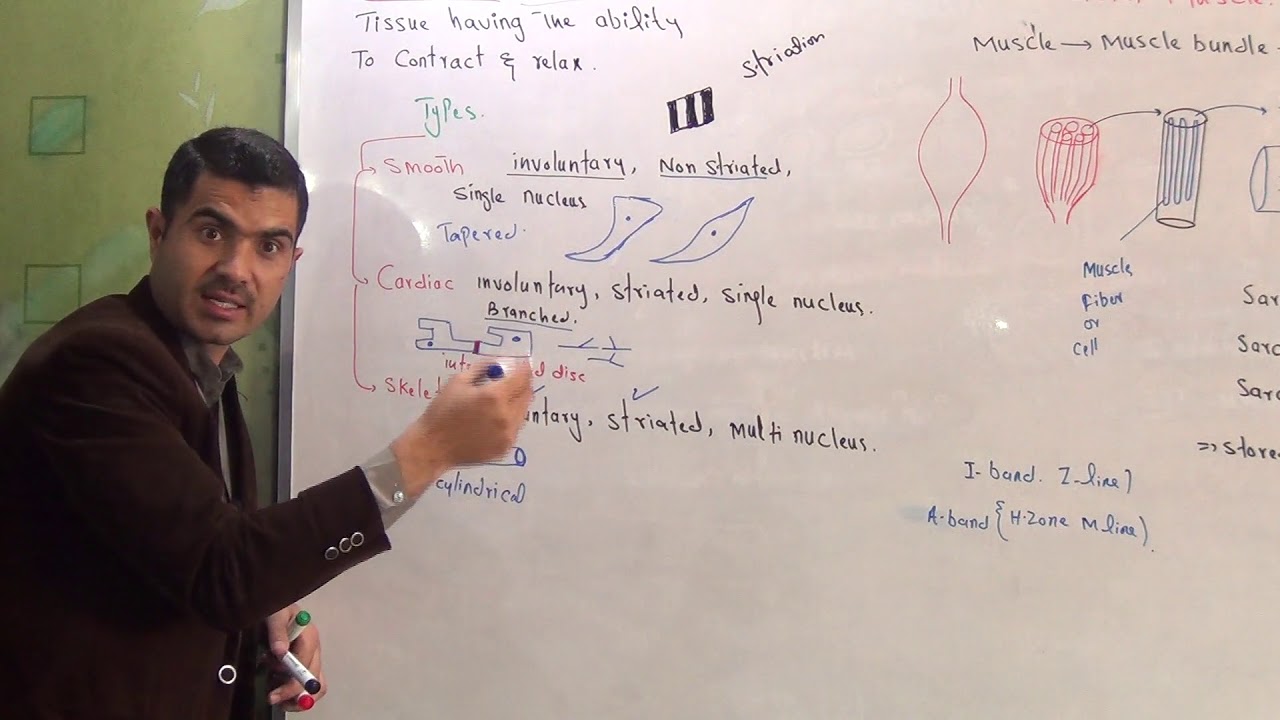 Tissue having The ability
To Contract & relax.
Striation
Types.
Smooth involuntary, Non striated,
Single nucleus
Tapered.
Cardiac involuntary, striated, single nucleus.
Branched.
disc
striated, multi nucleus.
cylindrical
Muscle.
Muscle → Muscle bundle
Muscle
Fiber
or
cell
I-band. Z-line)
A-band { H-Zone M line).